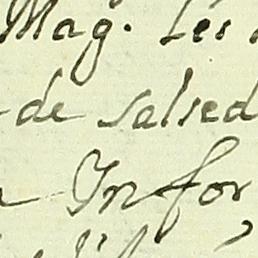 Mag. Les
de salsed
Infor